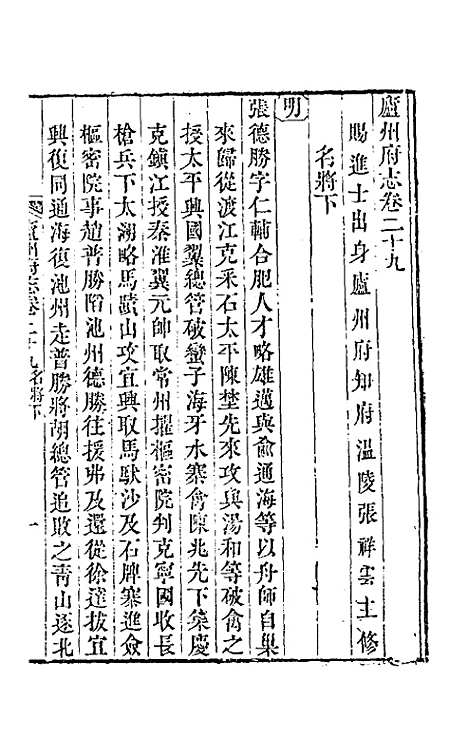 廬州府志卷二十九
賜進士出身廬州府知府溫陵張祥雲主修
名將下
明
張德勝字仁輔合肥人才略雄邁與俞通海等以舟師自巢
來歸從渡江克采石太平陳埜先來攻與湯和等破禽之
授太平興國翼總管破蠻子海牙水寨禽陳兆先下集慶
克鎮江授秦淮翼元帥取常州擢樞密院判克寧國收長
槍兵下太湖略馬蹟山攻宜興取馬馱沙及石牌寨進僉
樞密院事趙普勝陷池州德勝往援弗及還從徐達拔宜
興復同通海復池州走普勝將胡總管追敗之青山逐北
廬州府志卷二十九名將下
一